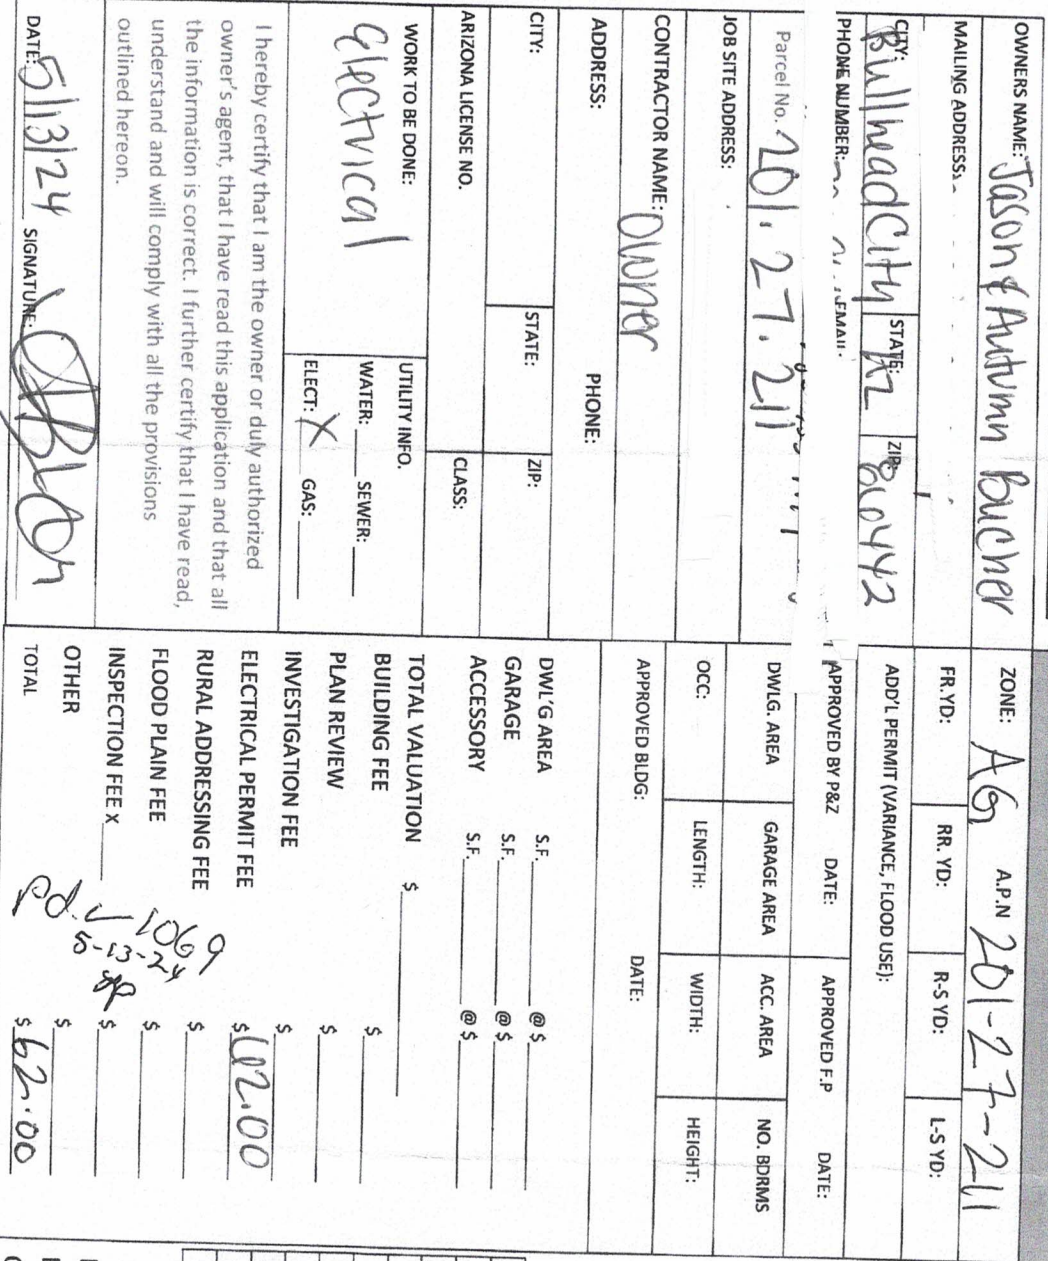 OWNERS NAME: Jason & Autumn Boucher
MAILING ADDRESS:
CITY: Bullhead City STATE: AZ ZIP: 86442
PHONE NUMBER: EMAIL:
Parcel No. 201.27.211
JOB SITE ADDRESS:
CONTRACTOR NAME: Owner
ADDRESS: PHONE:
CITY: STATE: ZIP:
ARIZONA LICENSE NO. CLASS:
WORK TO BE DONE:
Electrical
UTILITY INFO.
WATER: SEWER:
ELECT: X GAS:
I hereby certify that I am the owner or duly authorized
owner's agent, that I have read this application and that all
the information is correct. I further certify that I have read,
understand and will comply with all the provisions
outlined hereon.
DATE: 5/13/24 SIGNATURE:
ZONE: AG A.P.N 201-27-211
FR.YD: RR. YD: R-S YD: L-S YD:
ADD'L PERMIT (VARIANCE, FLOOD USE):
APPROVED BY P&Z DATE: APPROVED F.P DATE:
DWLG. AREA GARAGE AREA ACC. AREA NO. BDRMS
OCC: LENGTH: WIDTH: HEIGHT:
APPROVED BLDG: DATE:
DWL'G AREA S.F. @ $
GARAGE S.F. @ $
ACCESSORY S.F. @ $
TOTAL VALUATION $
BUILDING FEE $
PLAN REVIEW $
INVESTIGATION FEE $
ELECTRICAL PERMIT FEE $ 62.00
RURAL ADDRESSING FEE $
FLOOD PLAIN FEE $
INSPECTION FEE x $
OTHER $
TOTAL $ 62.00
pd. 1069
5-13-24